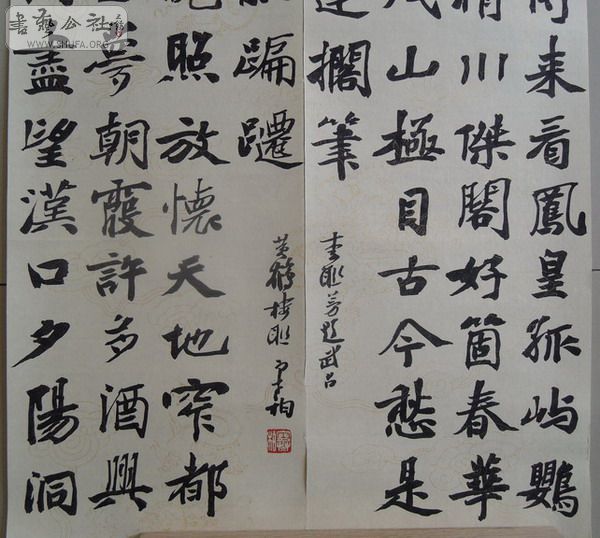 来看鳳皇孤屿鸚
晴川傑閣好箇春華
山極目古今愁是
蓮擱筆
李联芳題武昌
盡望漢口夕陽洞
夢朝霞許多酒興
照放懷天地窄都
蹁躚
黄鶴楼联
書藝公社
WWW.SHUFA.ORG